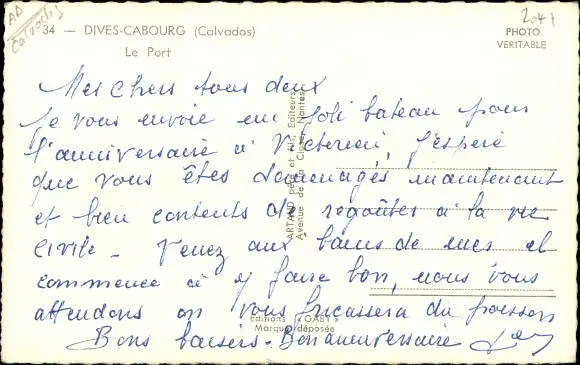 AA
Calvados
2041
34 — DIVES-CABOURG (Calvados)
Le Port
PHOTO
VERITABLE
Mes chers tous deux
Je vous envoie un joli bateau pour
l'anniversaire à J'espère
que vous êtes maintenant
et bien contents de regoûter à la vie
civile - Venez aux bains de mer il
commence à y faire bon, nous vous
attendons on vous fricassera du poisson
Bons baisers - Bon anniversaire
ARTAUD père et fils, Editeurs
Avenue de la Close, Nantes
Editions « GABY »
Marque déposée